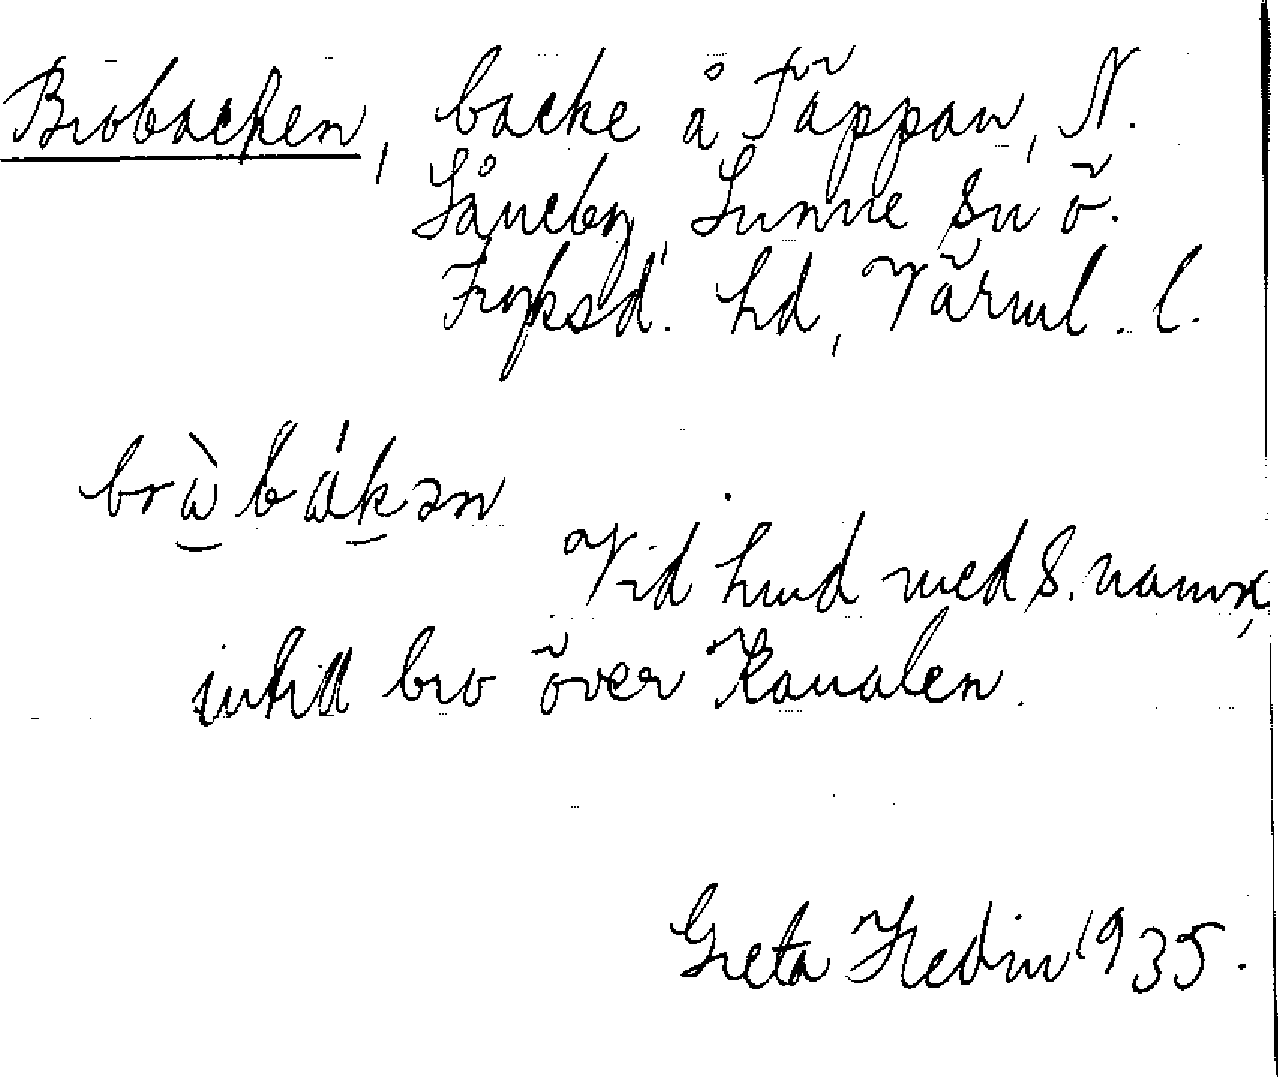 Brobacken, backe å Täppan, N.
Såneby, Sunne sn ö.
Fryksd. hd, Värml. l.
bràbákən
Vid hmd med s. namn,
intill bro över Kanalen.
Greta Hedin 1935.